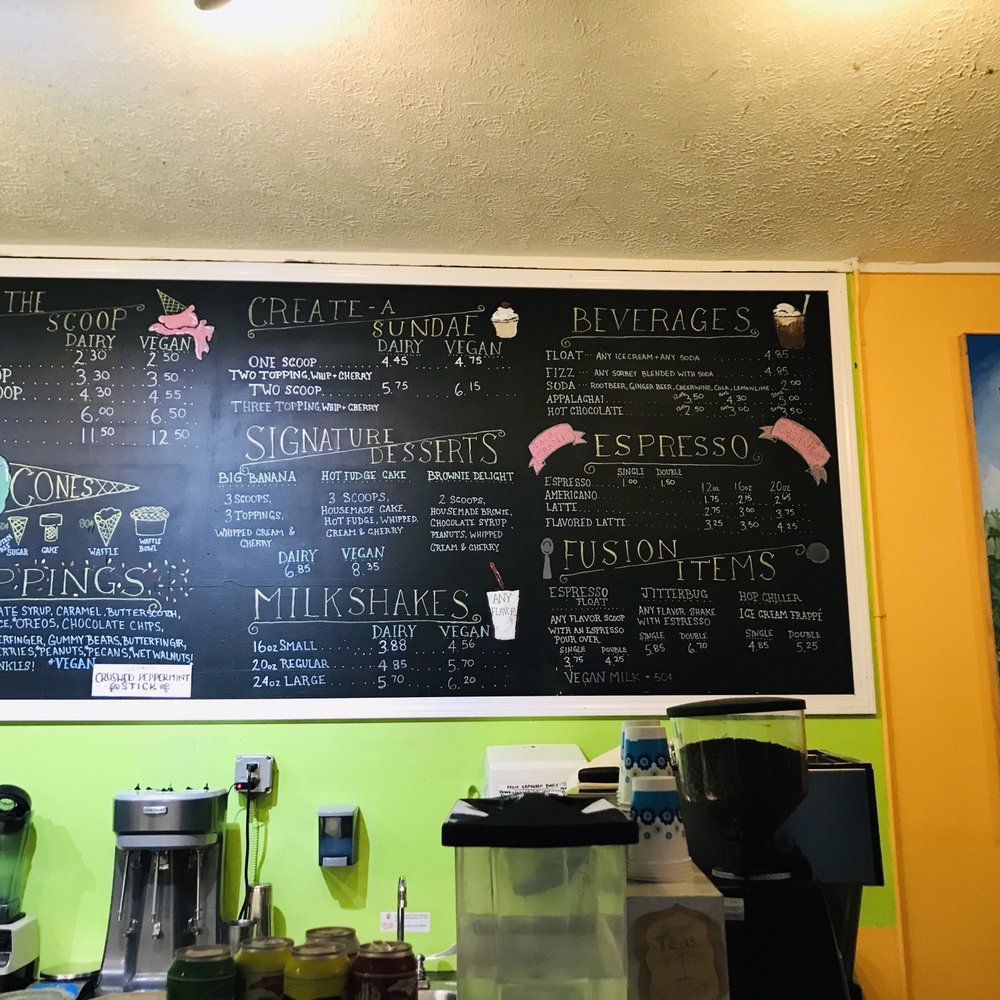 THE
SCOOP
DAIRY VEGAN
2.30 2.50
OP 3.30 3.50
OOP 4.30 4.55
6.00 6.50
11.50 12.50
CONES
80¢
SUGAR CAKE WAFFLE WAFFLE BOWL
PPINGS
ATE SYRUP, CARAMEL, BUTTERSCOTCH,
CE, OREOS, CHOCOLATE CHIPS,
ERFINGER, GUMMY BEARS, BUTTERFINGER,
ERRIES, PEANUTS, PECANS, WET WALNUTS!
NKLES! *VEGAN
CRUSHED PEPPERMINT
STICK
CREATE-A
SUNDAE
DAIRY VEGAN
ONE SCOOP 4.45 4.75
TWO TOPPING, WHIP + CHERRY
TWO SCOOP 5.75 6.15
THREE TOPPING, WHIP + CHERRY
SIGNATURE
DESSERTS
BIG BANANA
3 SCOOPS,
3 TOPPINGS,
WHIPPED CREAM &
CHERRY
HOT FUDGE CAKE
3 SCOOPS,
HOUSEMADE CAKE,
HOT FUDGE, WHIPPED
CREAM & CHERRY
BROWNIE DELIGHT
2 SCOOPS,
HOUSEMADE BROWNIE,
CHOCOLATE SYRUP,
PEANUTS, WHIPPED
CREAM & CHERRY
DAIRY VEGAN
6.85 8.35
MILKSHAKES
ANY
FLAVOR
DAIRY VEGAN
16oz SMALL 3.88 4.56
20oz REGULAR 4.85 5.70
24oz LARGE 5.70 6.20
BEVERAGES
FLOAT - ANY ICE CREAM + ANY SODA 4.85
FIZZ - ANY SORBET BLENDED WITH SODA 4.85
SODA - ROOTBEER, GINGER BEER, CHEERWINE, COLA, LEMON LIME 2.00
APPALACHAI 3.50 4.30 5.00
HOT CHOCOLATE 2.50 3.00 3.50
ESPRESSO
SINGLE DOUBLE
ESPRESSO 1.00 1.50
12oz 16oz 20oz
AMERICANO 1.75 2.15 2.65
LATTE 2.75 3.00 3.75
FLAVORED LATTE 3.25 3.50 4.25
FUSION
ITEMS
ESPRESSO
FLOAT
ANY FLAVOR SCOOP
WITH AN ESPRESSO
POUR OVER
SINGLE DOUBLE
3.75 4.25
JITTERBUG
ANY FLAVOR SHAKE
WITH ESPRESSO
SINGLE DOUBLE
5.85 6.70
HOP CHILLER
ICE CREAM FRAPPÉ
SINGLE DOUBLE
4.85 5.25
VEGAN MILK + 50¢
Teas